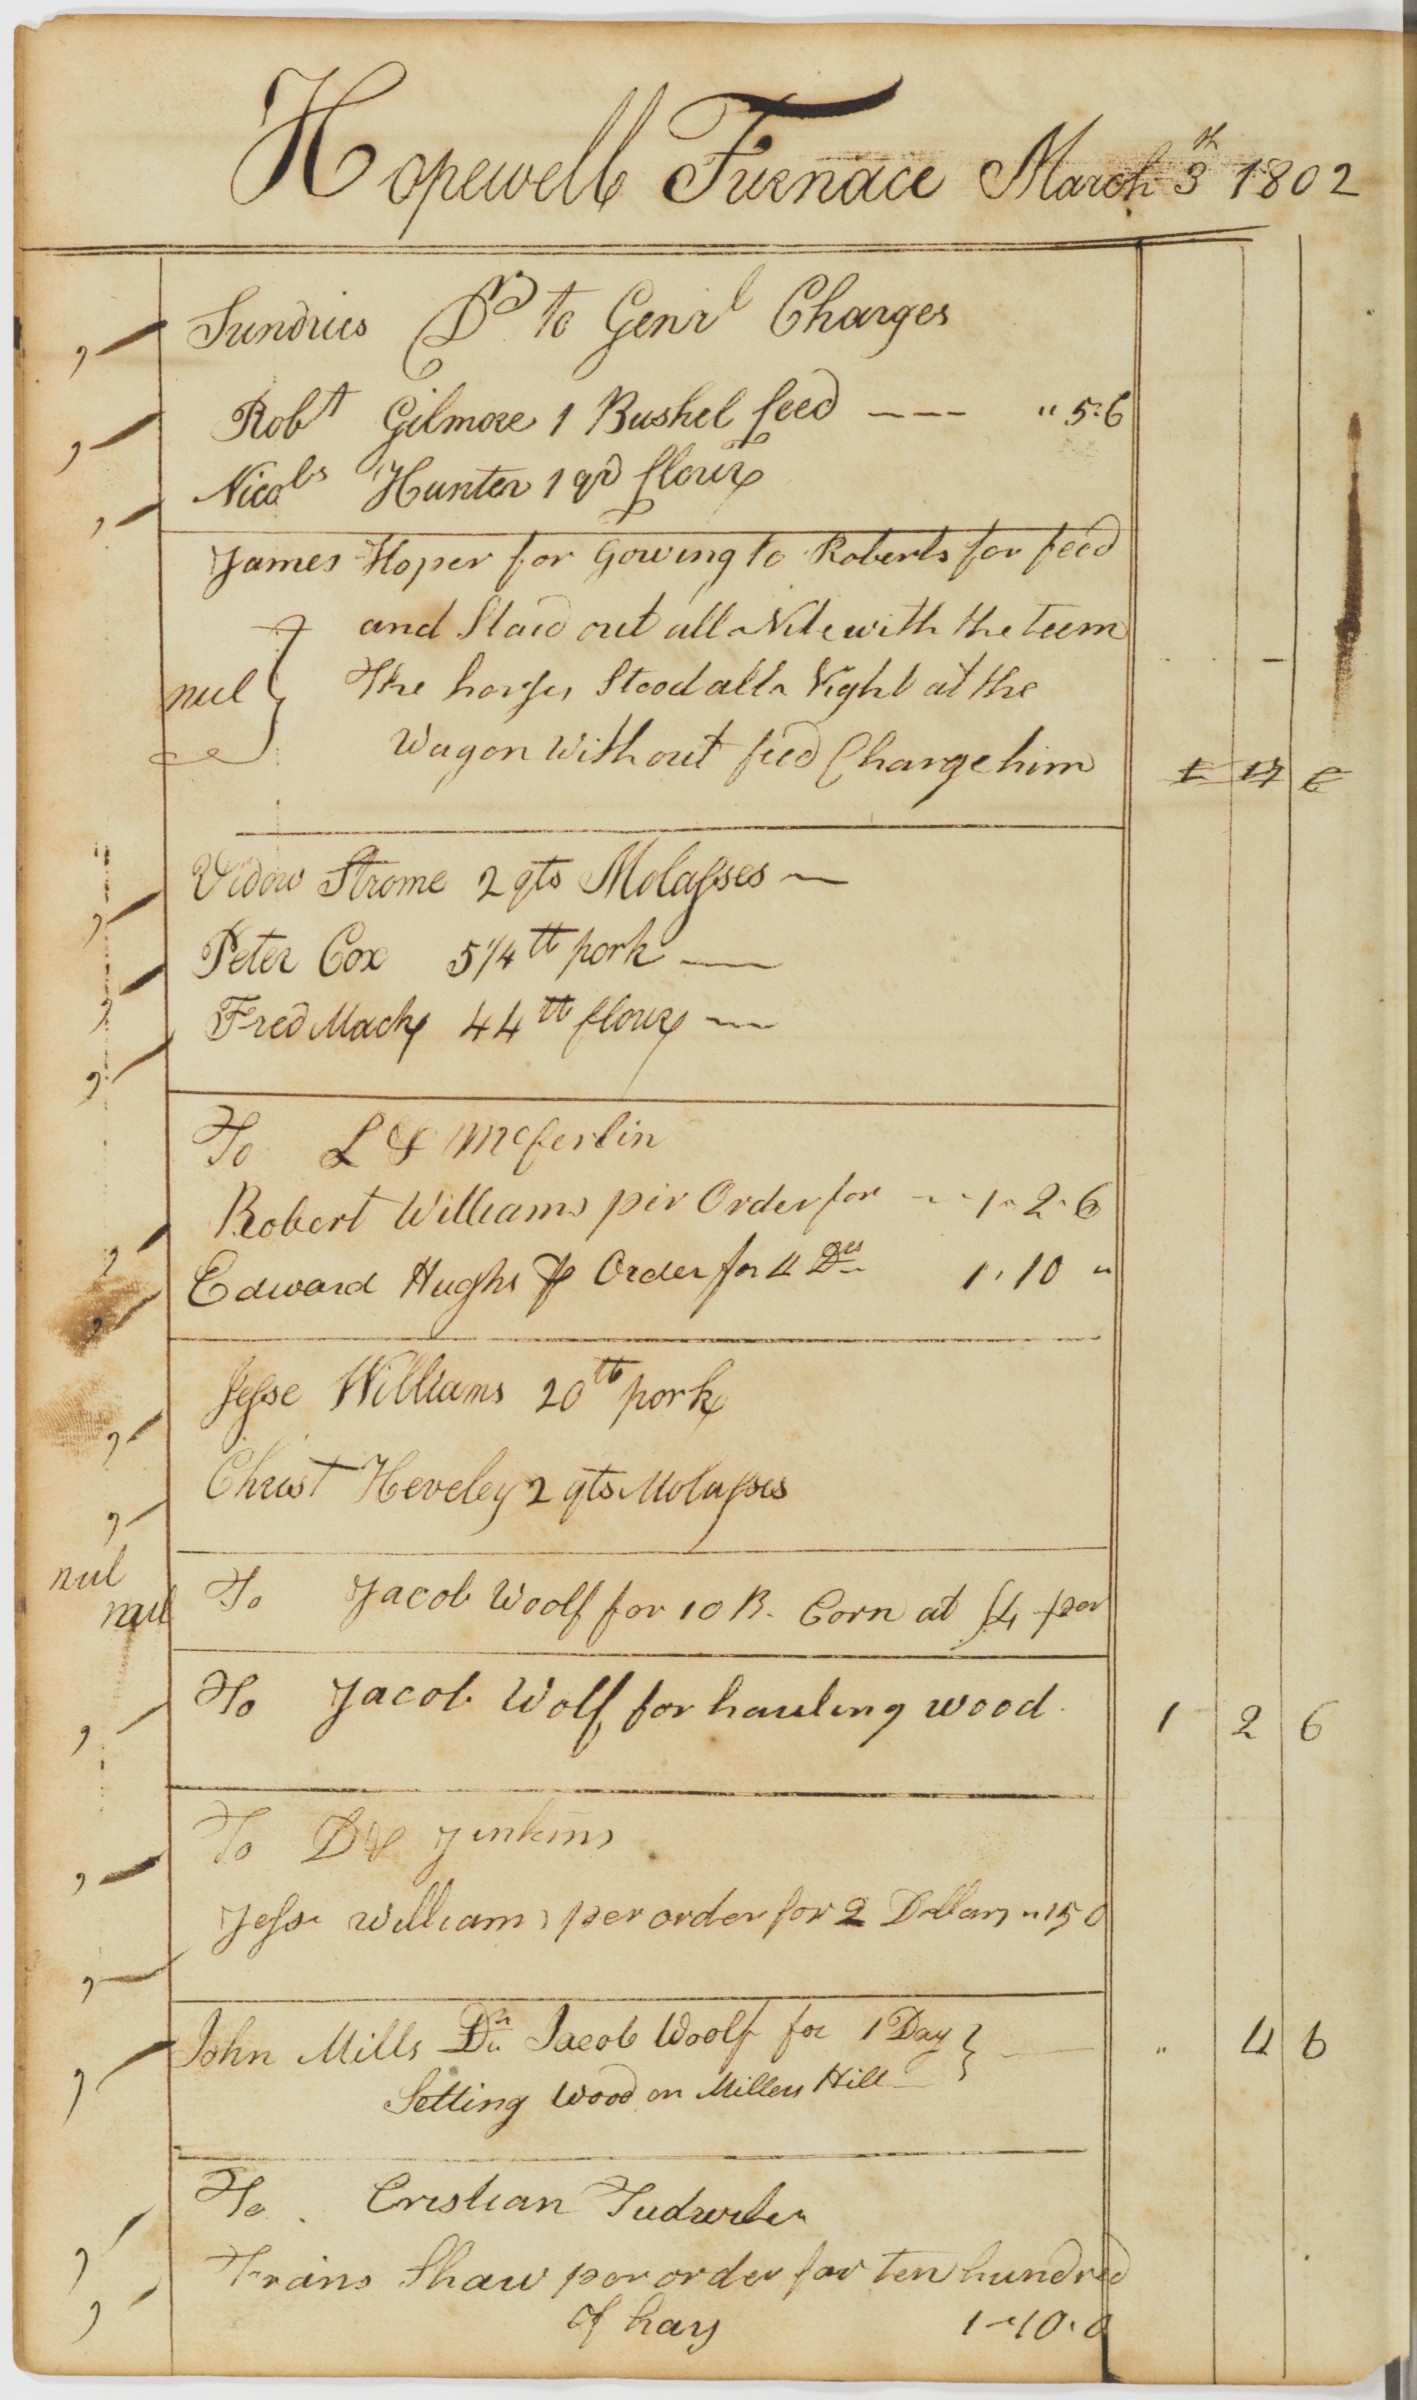 Hopewell Furnace March 3th 1802
Sundries Dr to Genrl Charges
Robt Gilmore 1 Bushel feed --- " 5.6
Nicols Hunter 1 qr flour
James Hoper for Gowing to Roberts for feed
and Staid out all Nite with the teem
nul } The horses Stood all Night at the
Wagon Without feed Charge him 1 17 6
Vidow Strome 2 qts Molasses —
Peter Cox 5 1/4 lb pork —
Fred Macky 44 lb flour —
To L & McFerlin
Robert Williams per Order for - - 1 - 2 - 6
Edward Hughs p Order for 4 Drs 1 . 10 "
Jesse Williams 20 lb pork
Christ Heveley 2 qts Molasses
nul
nul To Jacob Woolf for 10 B. Corn at f4 per
To Jacob Wolf for hauling wood. 1 2 6
To Jenkins
Jesse Williams per order for 2 Dollars " 15 0
John Mills Dr Jacob Woolf for 1 Day } — " 4 6
Setting Wood on Millers Hill
To Cristian
Frains Shaw per order for ten hundred
of hay 1 - 10 . 0